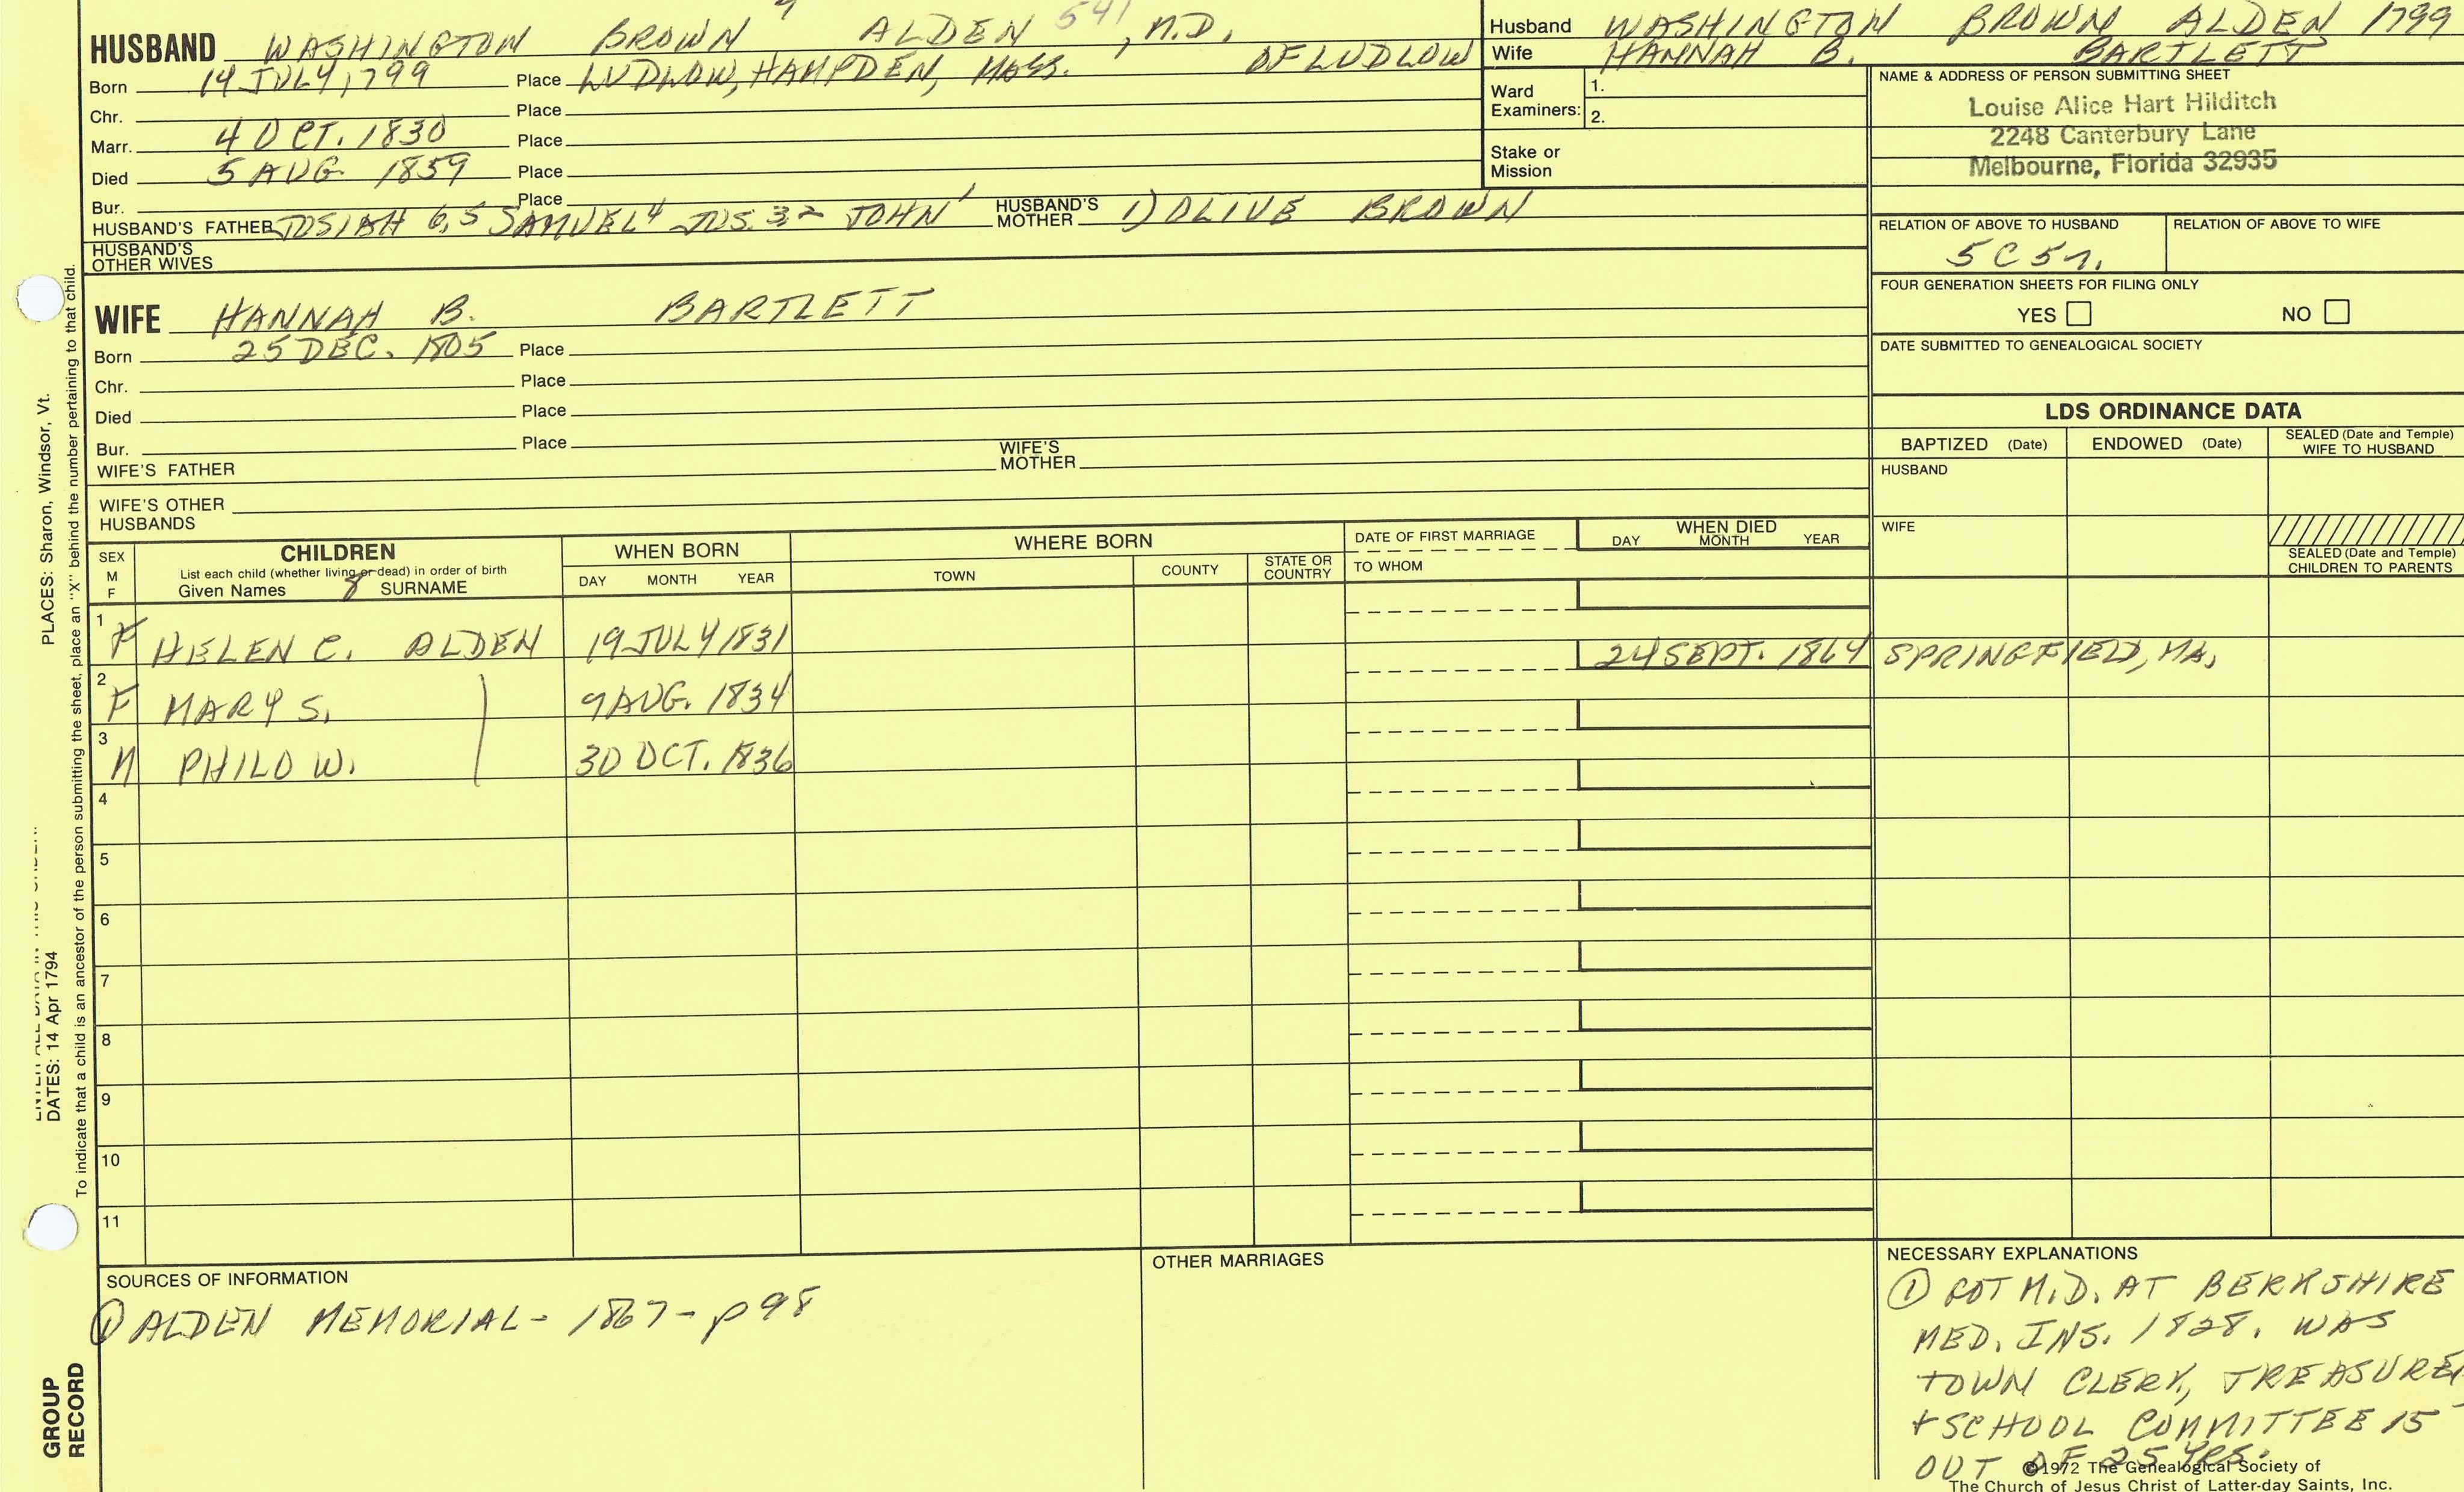 HUSBAND WASHINGTON BROWN ALDEN 541, M.D.
Born 14 JULY 1799 Place LUDLOW, HAMPDEN, MASS. OF LUDLOW
Chr. Place
Marr. 4 OCT. 1830 Place
Died 5 AUG. 1859 Place
Bur. Place
HUSBAND'S FATHER JOSIAH 6,5 SAMUEL 4 JOS. 3 2 JOHN 1 HUSBAND'S MOTHER 1) OLIVE BROWN
HUSBAND'S
OTHER WIVES
Husband WASHINGTON BROWN ALDEN 1799
Wife HANNAH B. BARTLETT
Ward
Examiners: 1.
2.
Stake or
Mission
NAME & ADDRESS OF PERSON SUBMITTING SHEET
Louise Alice Hart Hilditch
2248 Canterbury Lane
Melbourne, Florida 32935
RELATION OF ABOVE TO HUSBAND RELATION OF ABOVE TO WIFE
5C5r.
FOUR GENERATION SHEETS FOR FILING ONLY
YES NO
DATE SUBMITTED TO GENEALOGICAL SOCIETY
WIFE HANNAH B. BARTLETT
Born 25 DEC. 1805 Place
Chr. Place
Died Place
Bur. Place
WIFE'S FATHER WIFE'S MOTHER
WIFE'S OTHER
HUSBANDS
LDS ORDINANCE DATA
BAPTIZED (Date) ENDOWED (Date) SEALED (Date and Temple)
WIFE TO HUSBAND
HUSBAND
WIFE
SEALED (Date and Temple)
CHILDREN TO PARENTS
SEX
M
F
CHILDREN
List each child (whether living or dead) in order of birth
Given Names 8 SURNAME
WHEN BORN
DAY MONTH YEAR
WHERE BORN
TOWN COUNTY STATE OR
COUNTRY
DATE OF FIRST MARRIAGE
TO WHOM
WHEN DIED
DAY MONTH YEAR
1 F HELEN C. ALDEN 19 JULY 1831 24 SEPT. 1864 SPRINGFIELD, MA.
2 F MARY S. 9 AUG. 1834
3 M PHILO W. 30 OCT. 1836
4
5
6
7
8
9
10
11
SOURCES OF INFORMATION
① ALDEN MEMORIAL - 1867 - p 98
OTHER MARRIAGES
NECESSARY EXPLANATIONS
① GOT M.D. AT BERKSHIRE
MED. INS. 1828. WAS
TOWN CLERK, TREASURER
+ SCHOOL COMMITTEE 15
OUT OF 25 YRS.
©1972 The Genealogical Society of
The Church of Jesus Christ of Latter-day Saints, Inc.
PLACES: Sharon, Windsor, Vt.
DATES: 14 Apr 1794
To indicate that a child is an ancestor of the person submitting the sheet, place an "X" behind the number pertaining to that child.
GROUP
RECORD